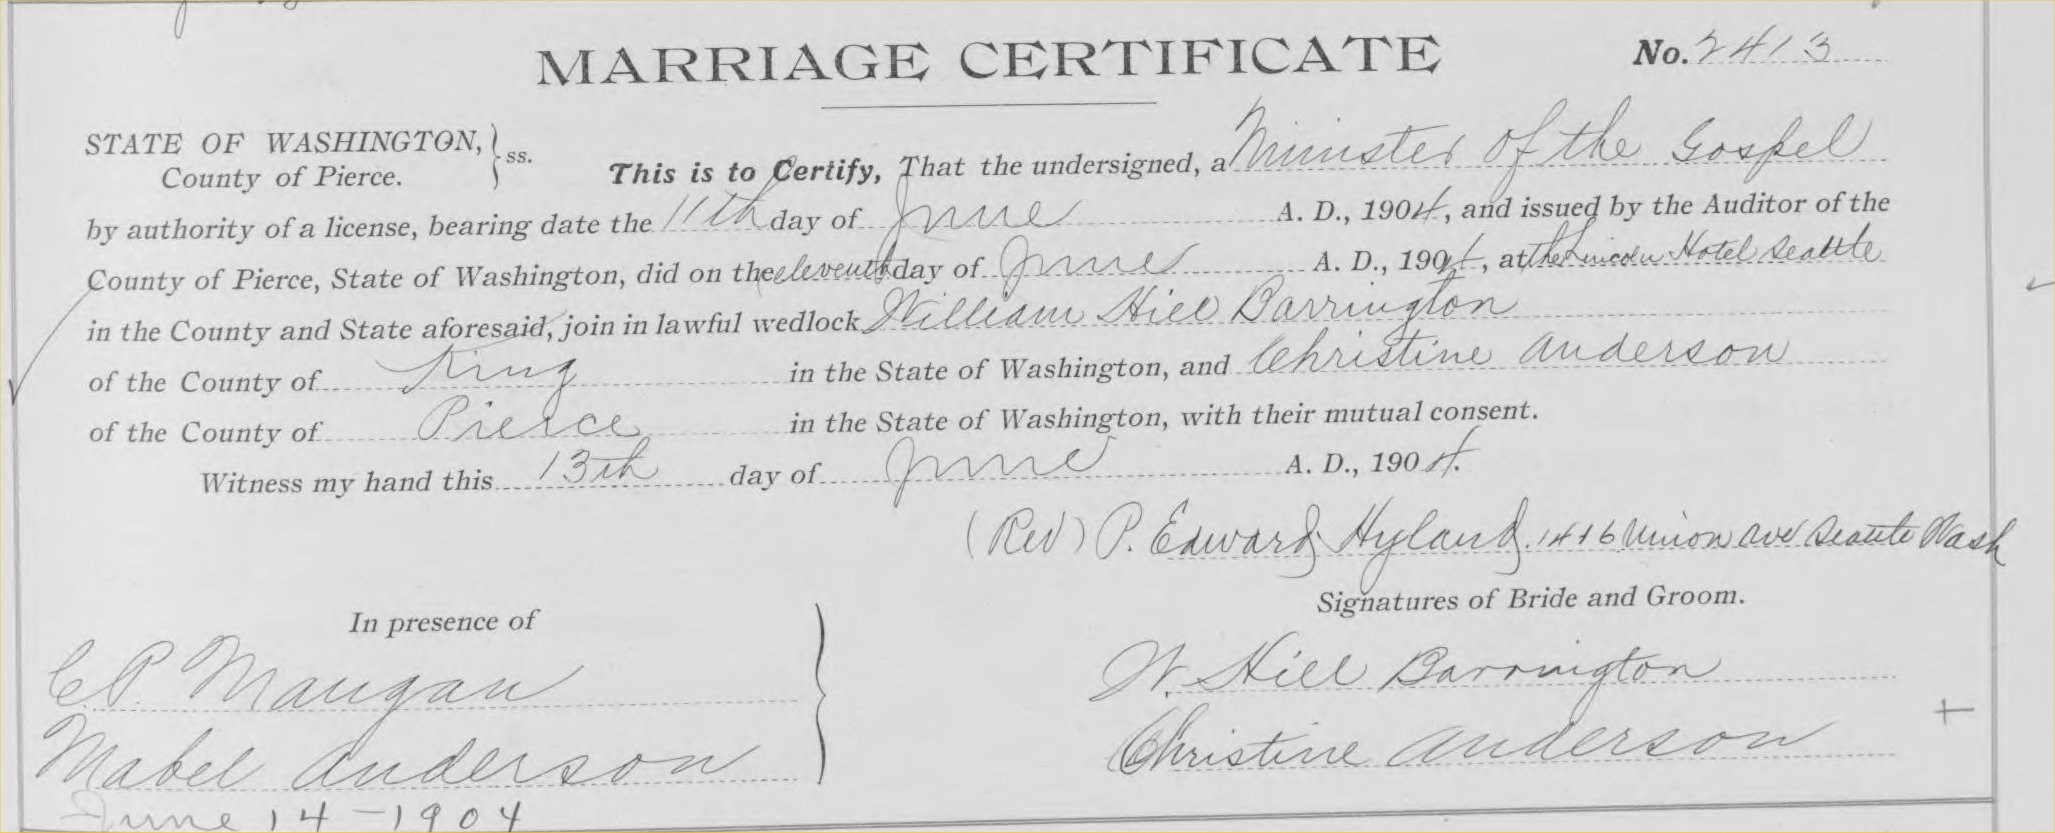 MARRIAGE CERTIFICATE No. 2413
STATE OF WASHINGTON, } ss.
County of Pierce.
This is to Certify, That the undersigned, a Minister of the Gospel
by authority of a license, bearing date the 11th day of June A. D., 1904, and issued by the Auditor of the
County of Pierce, State of Washington, did on the eleventh day of June A. D., 1904, at the Lincoln Hotel Seattle
in the County and State aforesaid, join in lawful wedlock William Hill Barrington
of the County of King in the State of Washington, and Christine Anderson
of the County of Pierce in the State of Washington, with their mutual consent.
Witness my hand this 13th day of June A. D., 1904.
(Rev) P. Edward Hyland. 1416 Union Ave Seattle Wash
Signatures of Bride and Groom.
In presence of
C.P. Mangan
W. Hill Barrington
Mabel Anderson
Christine Anderson
June 14-1904